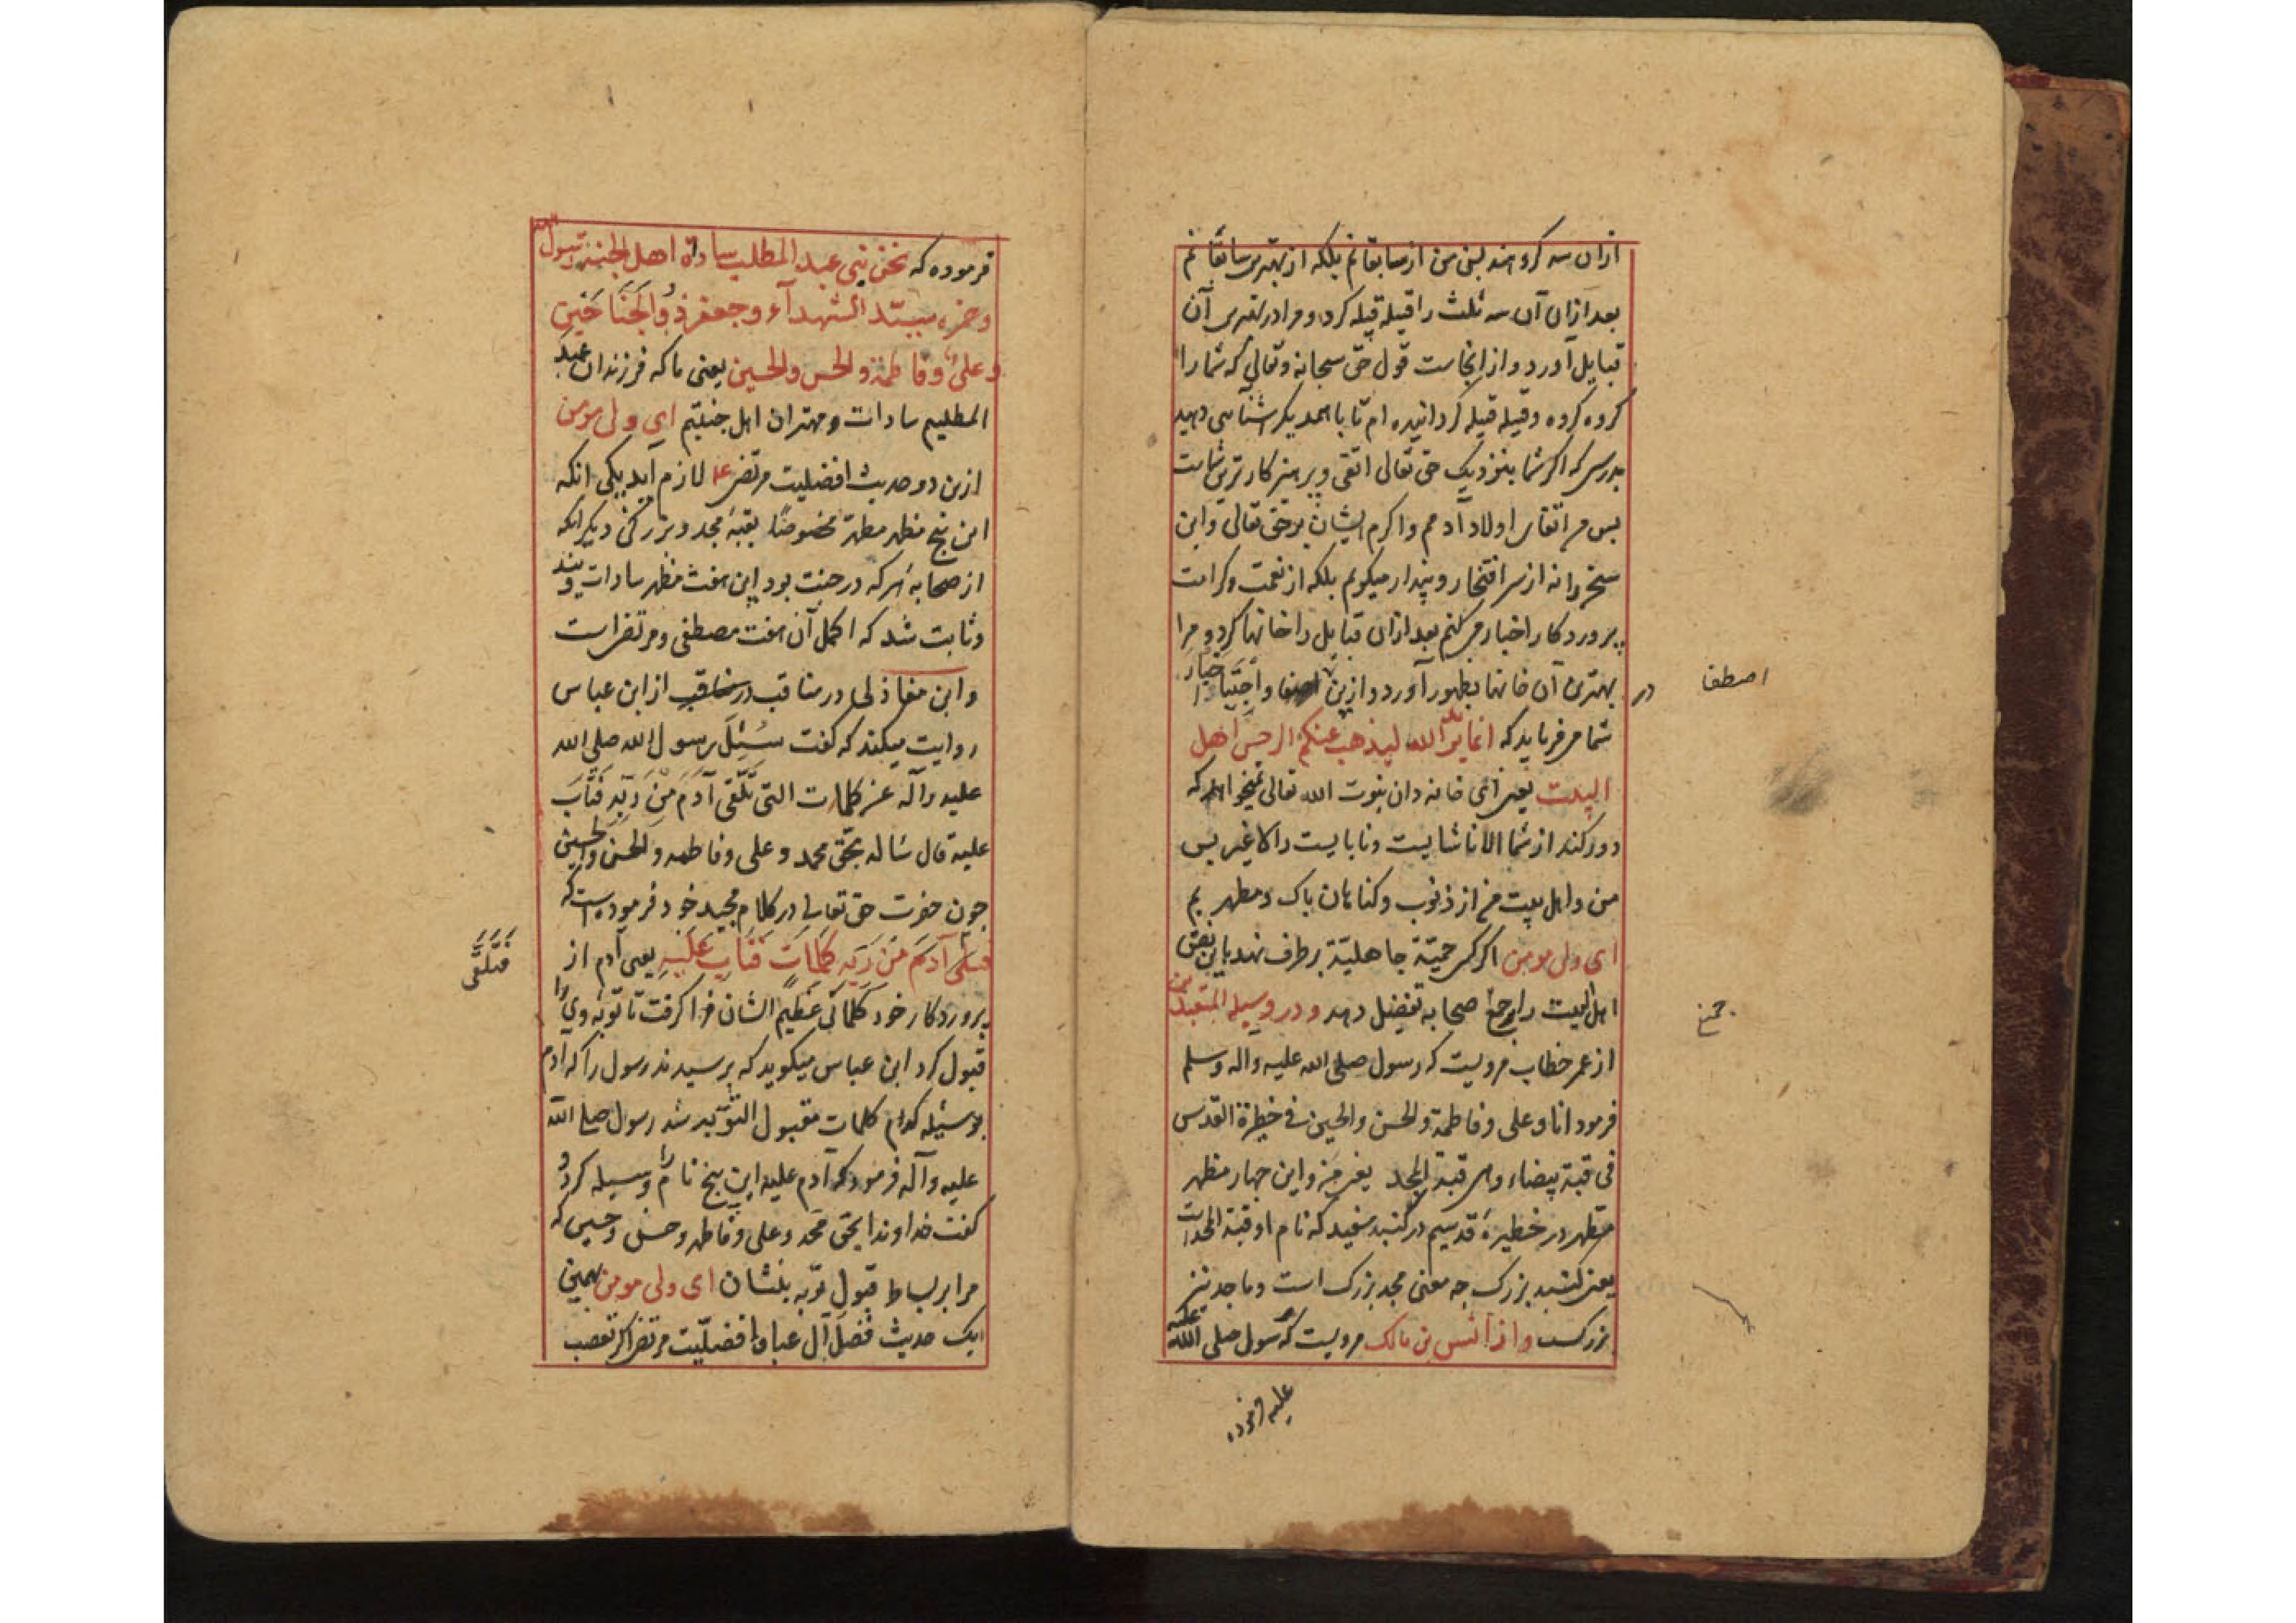 ازان سه کروهند پس من از سابقانم بلکه از بهترین سابقانم
بعد ازان آن سه ثلث را قبیله قبیله کرد و مرا در بهترین آن
قبایل آورد و از انجاست قول حق سبحانه و تعالی که شما را
کروه کروه و قبیله قبیله کردانیده ام تا با همدیکر شناسی دهید
بدرستی که اکرم شما بنزدیک حق تعالی اتقی و پرهیز کارترین شماست
پس من اتقای اولاد آدمم و اکرم ایشان بر حق تعالی و این
سخن را نه از سر افتخار و پندار میکویم بلکه از نعمت و کرامت
پروردکار اخبار میکنم بعد ازان قبایل را خانها کرد و مرا
در بهترین آن خانها بظهور آورد و ازین و اجتبا اخبار
اصطفا
شما میفرماید که انما یرید الله لیذهب عنکم الرجس اهل
البیت یعنی ای خانه دان نبوت الله تعالی نمیخواهد که
دور کند از شما الا ناشایست و نابایست را لا غیر پس
من و اهل بیت من از ذنوب و کناهان پاک و مطهریم
ای ولی مومن اکر کسی حمیّة جاهلیّة برطرف نهد یا این
اهل البیت را بر جمیع صحابه تفضیل دهد و در وسیلة المتعبدین
جمیع
از عمر خطاب مرویست که رسول صلی الله علیه وآله وسلم
فرمود انا و علی و فاطمة والحسن والحسین فی خطیرة القدس
فی قبة بیضاء وهی قبة المجد یعنی من و این چهار مظهر
مطهر در خطیرهٔ قدسیم در کنبد سفید که نام او قبة المجد است
یعنی کنبد بزرک چه معنی مجد بزرک است و ماجد نیز
بزرکست و از انس بن مالک مرویست که رسول صلی الله علیه
علیه فرموده
فرموده که نحن بنی عبد المطلب سادة اهل الجنة رسول الله
وحمزه سیّد الشهدآء وجعفر ذوالجناحین
وعلی وفاطمة والحسن والحسین یعنی ما که فرزندان عبد
المطلبیم سادات و مهتران اهل جنتیم ای ولی مومن
ازین دو حدیث افضلیت مرتضی ع لازم آید یکی انکه
این پنج مظهر مطهر مخصوصًا بقبهٔ مجد و بزرکی دیکر انکه
از صحابه هر که در جنت بود این هفت مظهر سادات ویند
وثابت شد که اکمل آن هفت مصطفی و مرتضی است
و ابن مغاذلی در مناقب از ابن عباس
روایت میکند که کفت سُئِلَ رسول الله صلی الله
علیه وآله عن کلمات التی تلقّی آدَمَ مِنْ رَبِّه فَتَابَ
علیه قال سَاله بحَقّ محمد و علی و فاطمه والحسن والحسین
چون حضرت حق تعالی در کلام مجید خود فرموده است که
فتلقّی آدَمَ مِنْ رَبِّه کَلِمَاتٍ فَتَابَ عَلَیه یعنی آدم از
فَتَلَقَّی
پروردکار خود کلماتی عظیم الشان فرا کرفت تا توبهٔ وی را
قبول کرد ابن عباس میکوید که پرسیدند رسول را که آدم
بوسیله کدام کلمات مقبول التوبه شد رسول صلی الله
علیه وآله فرمود که آدم علیه این پنج نام را وسیله کرد و
کفت خداوندا بحق محمد و علی و فاطمه و حسن و حسین که
مرا بر بساط قبول توبه بنشان ای ولی مومن همین
یک حدیث فضل آل عبا و افضلیّت مرتضی اکر تعصب